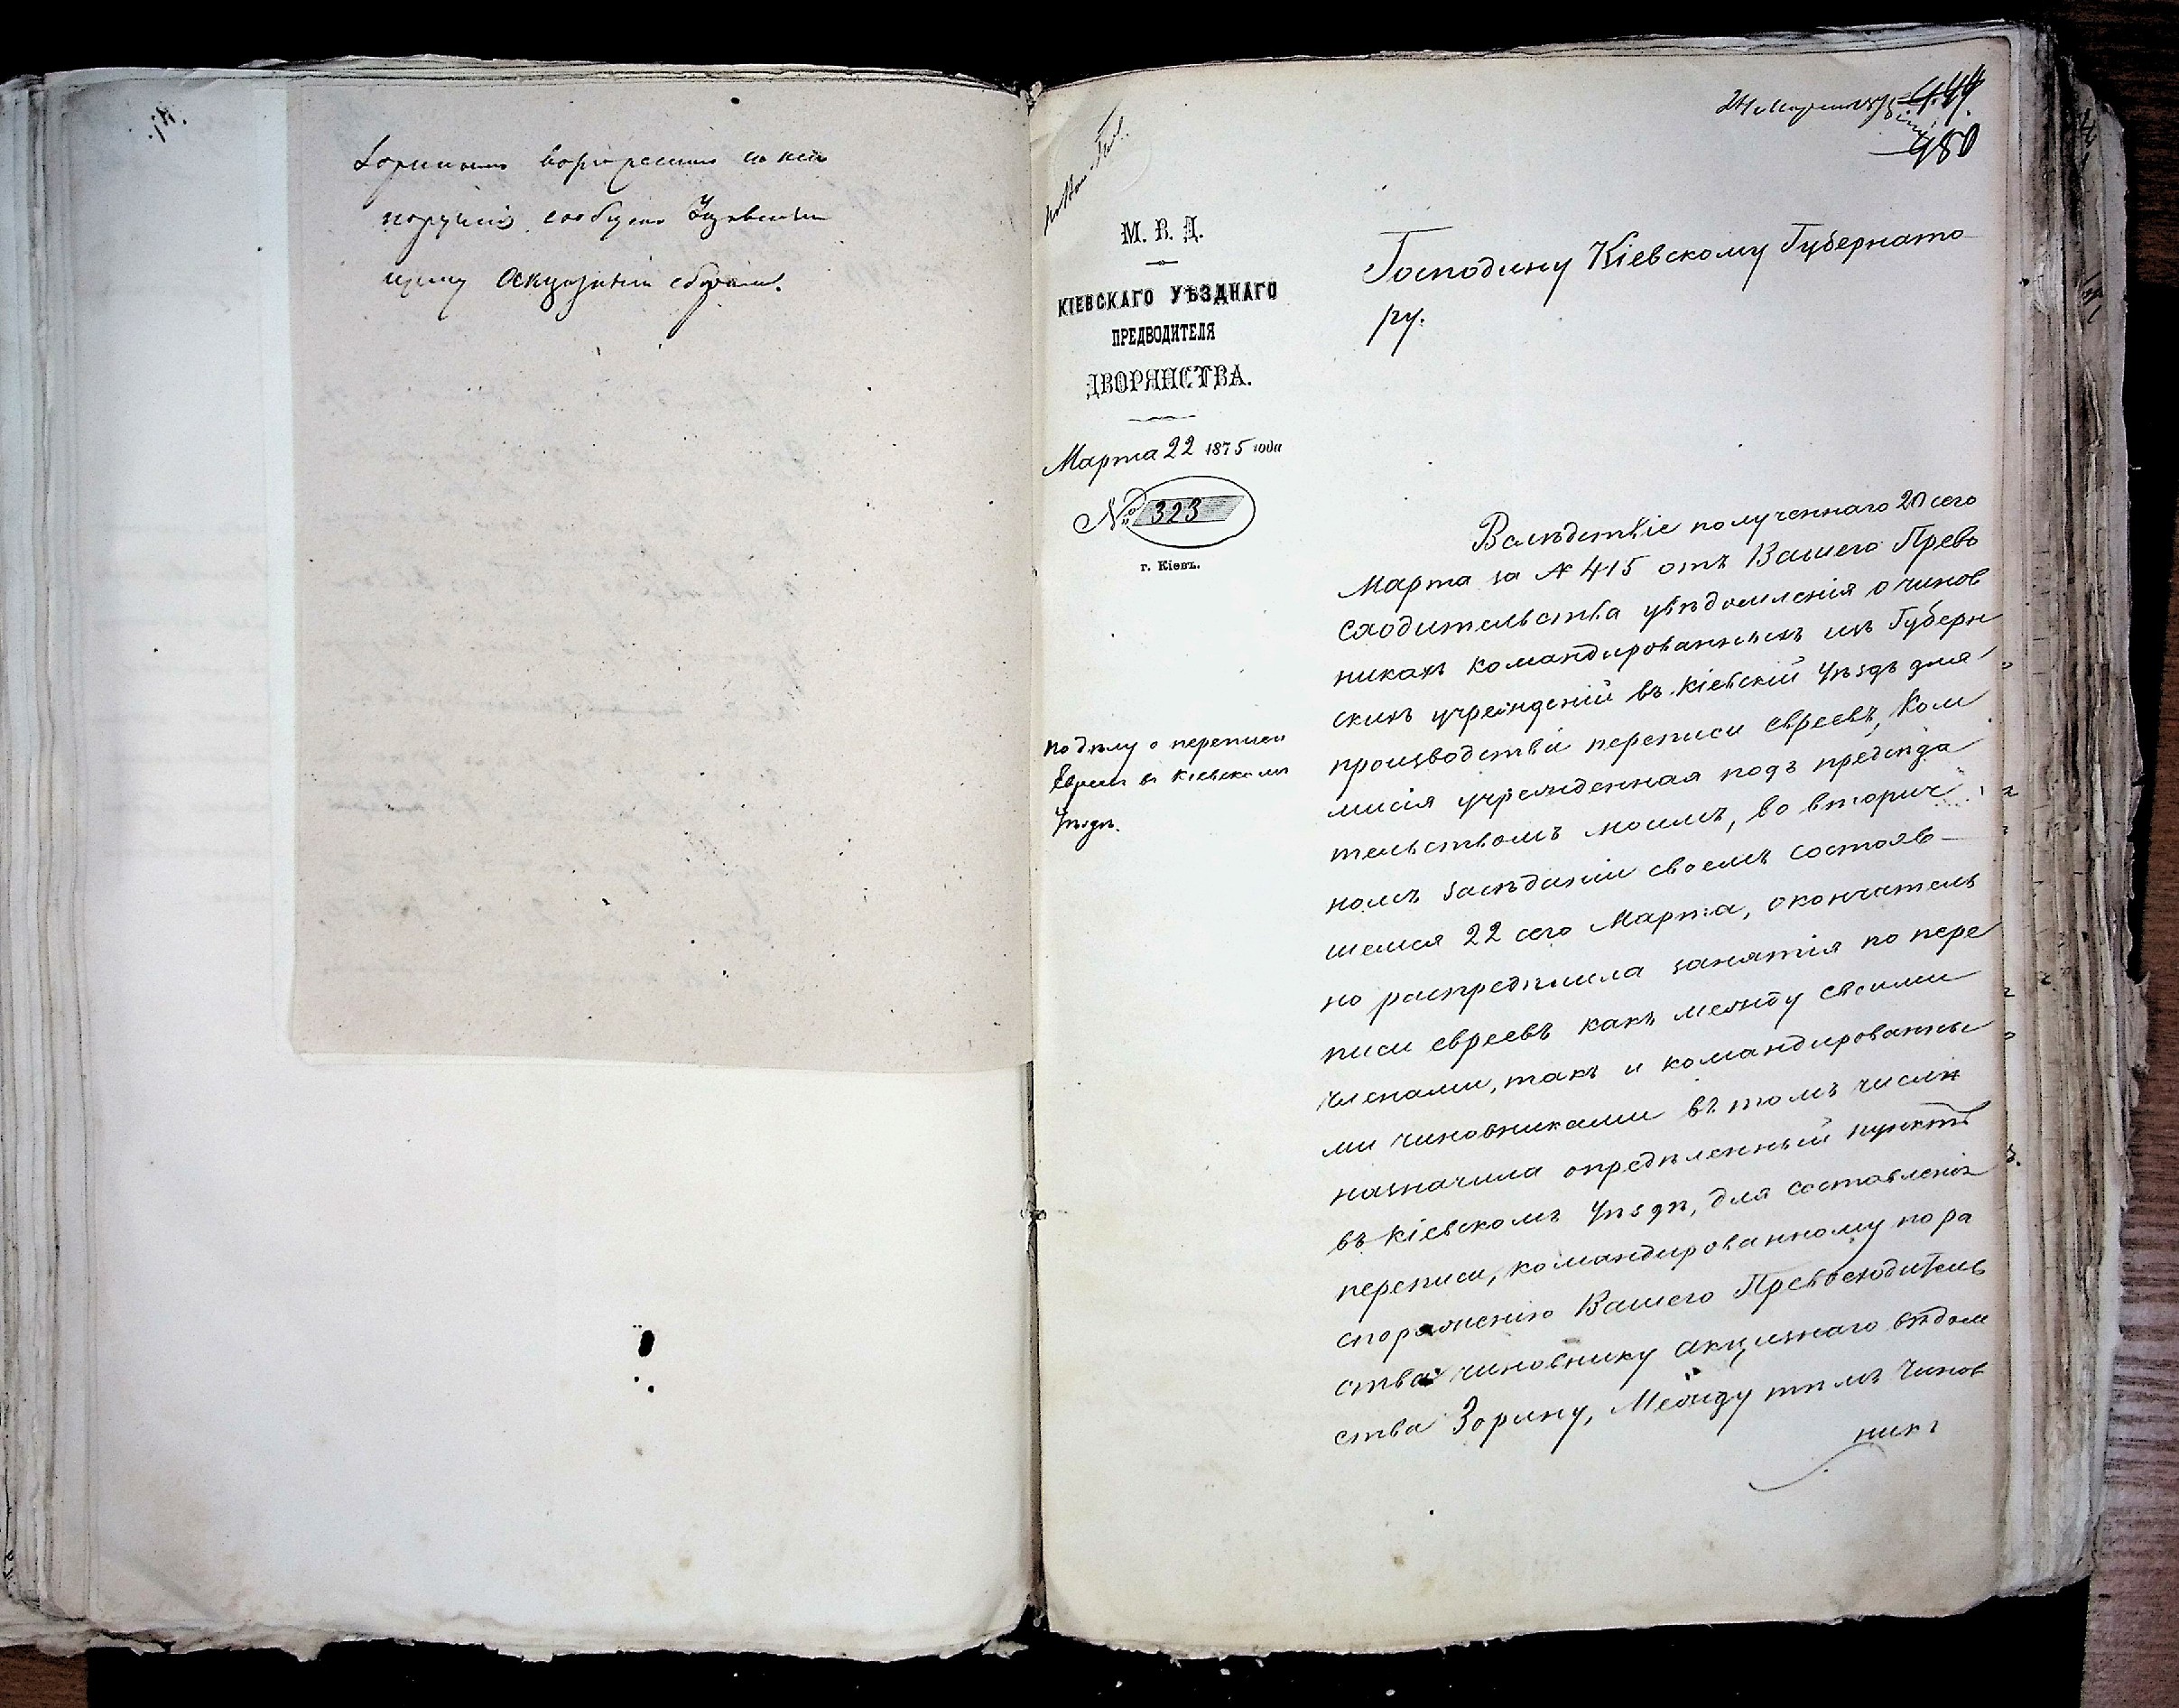 поручить сообщено Управляю
щему Акцизными сборами.
24 Марта 1875
480
М. В. Д.
КІЕВСКАГО УѢЗДНАГО
ПРЕДВОДИТЕЛЯ
ДВОРЯНСТВА.
Марта 22 1875 года
№ 323
г. Кіевъ.
По дѣлу о переписи
Евреевъ въ Кіевскомъ
Уѣздѣ.
Господину Кіевскому Губернато
ру.
Вслѣдствіе полученнаго 20 сего
Марта за № 415 отъ Вашего Прево
сходительства увѣдомленія о чинов
никахъ командированныхъ изъ Губерн
скихъ учрежденій въ Кіевскій Уѣздъ для
производства переписи евреевъ, Ком
мисія учрежденная подъ предсѣда
тельствомъ моимъ, во вторич
номъ засѣданіи своемъ состояв-
шемся 22 сего Марта, окончатель
но распредѣлила занятія по пере
писи евреевъ какъ между своими
членами, такъ и командированны
ми чиновниками въ томъ числѣ
назначила опредѣленный пунктъ
въ Кіевскомъ Уѣздѣ, для составленія
переписи, командированному по ра
споряженію Вашего Превосходитель
ства чиновнику акцизнаго вѣдом
ства Зорину, Между тѣмъ Чинов
никъ